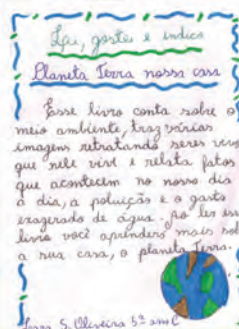 Leu, gostou e indica
Planeta Terra nossa casa
Esse livro conta sobre o
meio ambiente, traz várias
imagens retratando seres vivos
que nele vive e relata fatos
que acontecem no nosso dia
a dia, a poluição e o gasto
exagerado de água. Ao ler esse
livro você aprenderá mais sobre
a sua casa, o planeta Terra.
S. Oliveira 5º ano C